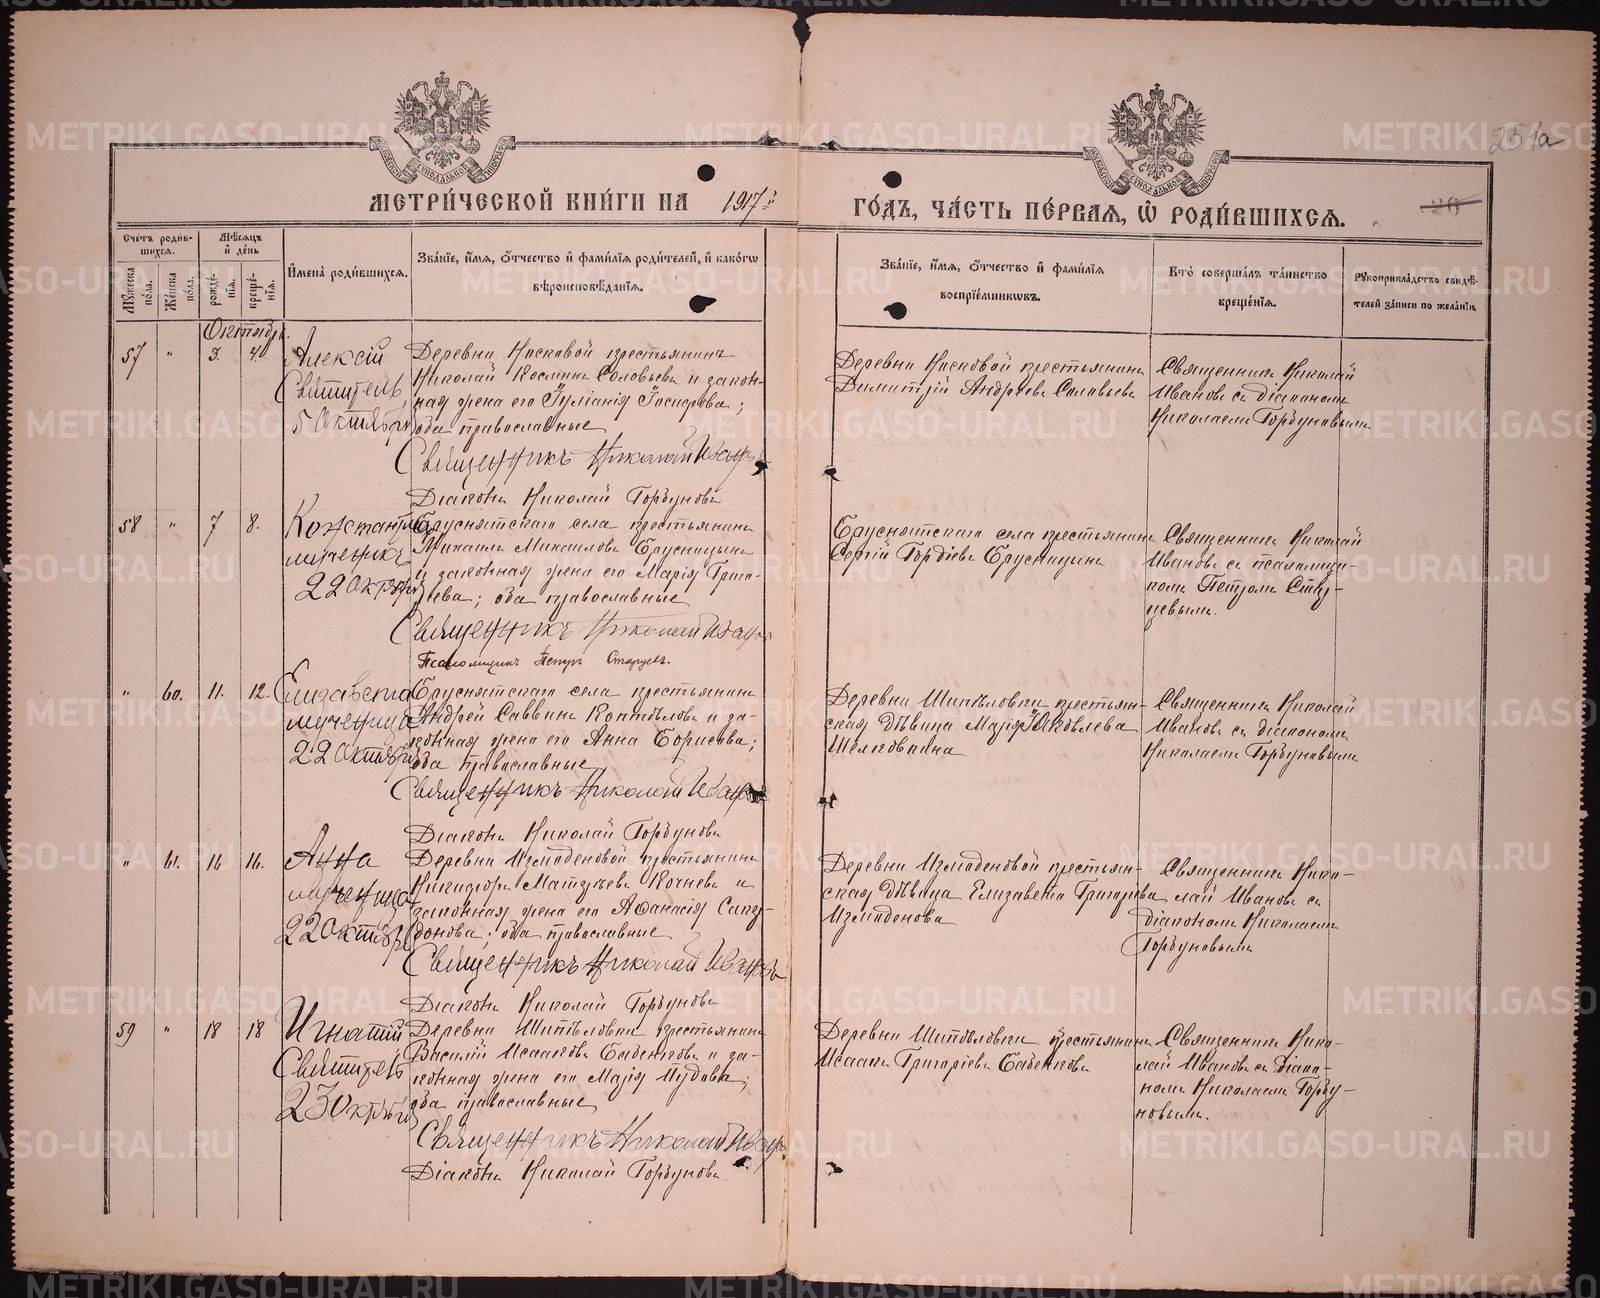 251а
МЕТРИ́ЧЕСКОЙ КНИ́ГИ НА 1917й ГО́ДЪ, ЧА́СТЬ ПЕ́РВАЯ, Ѡ РОДИ́ВШИХСЯ.
Счетъ роди́в-
шихся.
Му́жеска
по́ла.
Же́нска
по́ла.
Мѣ́сяцъ
и҆ де́нь
рожде́-
нїя.
креще́-
нїя.
И҆мена̀ роди́вшихся.
Зва́нїе, и҆́мя, ѻ҆́тчество и҆ фами́лїя роди́телей, и҆ како́гѡ
вѣроисповѣ́данїя.
Зва́нїе, и҆́мя, ѻ҆́тчество и҆ фами́лїя
воспрїе́мникѡвъ.
Кто̀ соверша́лъ та́инство
креще́нїя.
Рꙋкоприкла́дство свидѣ́-
телей за́писи по жела́нїю
Октябрь.
57 " 3. 4.
Алексій
Святитель
5 Октября
Деревни Носковой крестьянинъ
Николай Космин Соловьевъ и закон-
ная жена его Іуліанія Гаспарова;
оба православные
Священникъ Николай Ивановъ
Діаконъ Николай Горбуновъ
Деревни Носковой крестьянинъ
Димитрій Андреевъ Соловьевъ
Священникъ Николай
Ивановъ съ діакономъ
Николаемъ Горбуновымъ
58 " 7 8.
Константинъ
мученикъ
22 Октября
Бруснятскаго села крестьянинъ
Михаилъ Михаиловъ Брусницынъ
и законная жена его Марія Григо-
рьева; оба православные
Священникъ Николай Ивановъ
Псаломщикъ Петръ Старцевъ.
Бруснятскаго села крестьянинъ
Сергій Гордіевъ Брусницынъ
Священникъ Николай
Ивановъ съ псаломщи-
комъ Петромъ Стар-
цевымъ.
" 60. 11. 12.
Елизавета
мученица
22 Октября
Бруснятскаго села крестьянинъ
Андрей Саввинъ Коптѣловъ и за-
конная жена его Анна Борисова;
оба православные
Священникъ Николай Ивановъ
Діаконъ Николай Горбуновъ
Деревни Шипѣловки крестьян-
ская дѣвица Марія Яковлева
Шелковкина
Священникъ Николай
Ивановъ съ діакономъ
Николаемъ Горбуновымъ
" 61. 16 16.
Анна
мученица
22 Октября
Деревни Измоденовой крестьянинъ
Никифоръ Матѳѣевъ Кочневъ и
законная жена его Аѳанасія Спири-
донова; оба православные
Священникъ Николай Ивановъ
Діаконъ Николай Горбуновъ
Деревни Измоденовой крестьян-
ская дѣвица Елизавета Григорьева
Измоденова
Священникъ Нико-
лай Ивановъ съ
діакономъ Николаемъ
Горбуновымъ
59 " 18 18
Игнатій
Святитель
23 Октября
Деревни Шипѣловки крестьянинъ
Василій Исааковъ Бабенковъ и за-
конная жена его Марія Іудовна;
оба православные
Священникъ Николай Ивановъ
Діаконъ Николай Горбуновъ.
Деревни Шипѣловки крестьянинъ
Исаакъ Григоріевъ Бабенковъ
Священникъ Нико-
лай Ивановъ съ діако-
номъ Николаемъ Горбу-
новымъ.
METRIKI.GASO-URAL.RU